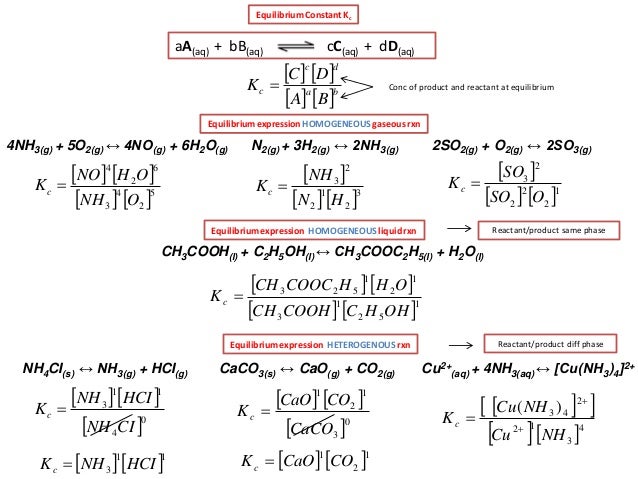 Equilibrium Constant Kc
aA(aq) + bB(aq) ⇌ cC(aq) + dD(aq)
Kc = [C]^c [D]^d / [A]^a [B]^b
Conc of product and reactant at equilibrium
Equilibrium expression HOMOGENEOUS gaseous rxn
4NH3(g) + 5O2(g) ↔ 4NO(g) + 6H2O(g) N2(g) + 3H2(g) ↔ 2NH3(g) 2SO2(g) + O2(g) ↔ 2SO3(g)
Kc = [NO]^4 [H2O]^6 / [NH3]^4 [O2]^5 Kc = [NH3]^2 / [N2]^1 [H2]^3 Kc = [SO3]^2 / [SO2]^2 [O2]^1
Equilibrium expression HOMOGENEOUS liquid rxn → Reactant/product same phase
CH3COOH(l) + C2H5OH(l) ↔ CH3COOC2H5(l) + H2O(l)
Kc = [CH3COOC2H5]^1 [H2O]^1 / [CH3COOH]^1 [C2H5OH]^1
Equilibrium expression HETEROGENOUS rxn → Reactant/product diff phase
NH4Cl(s) ↔ NH3(g) + HCl(g) CaCO3(s) ↔ CaO(g) + CO2(g) Cu2+(aq) + 4NH3(aq) ↔ [Cu(NH3)4]2+
Kc = [NH3]^1 [HCI]^1 / [NH4CI]^0 Kc = [CaO]^1 [CO2]^1 / [CaCO3]^0 Kc = [ [Cu(NH3)4]^2+ ] / [Cu^2+]^1 [NH3]^4
Kc = [NH3]^1 [HCI]^1 Kc = [CaO]^1 [CO2]^1